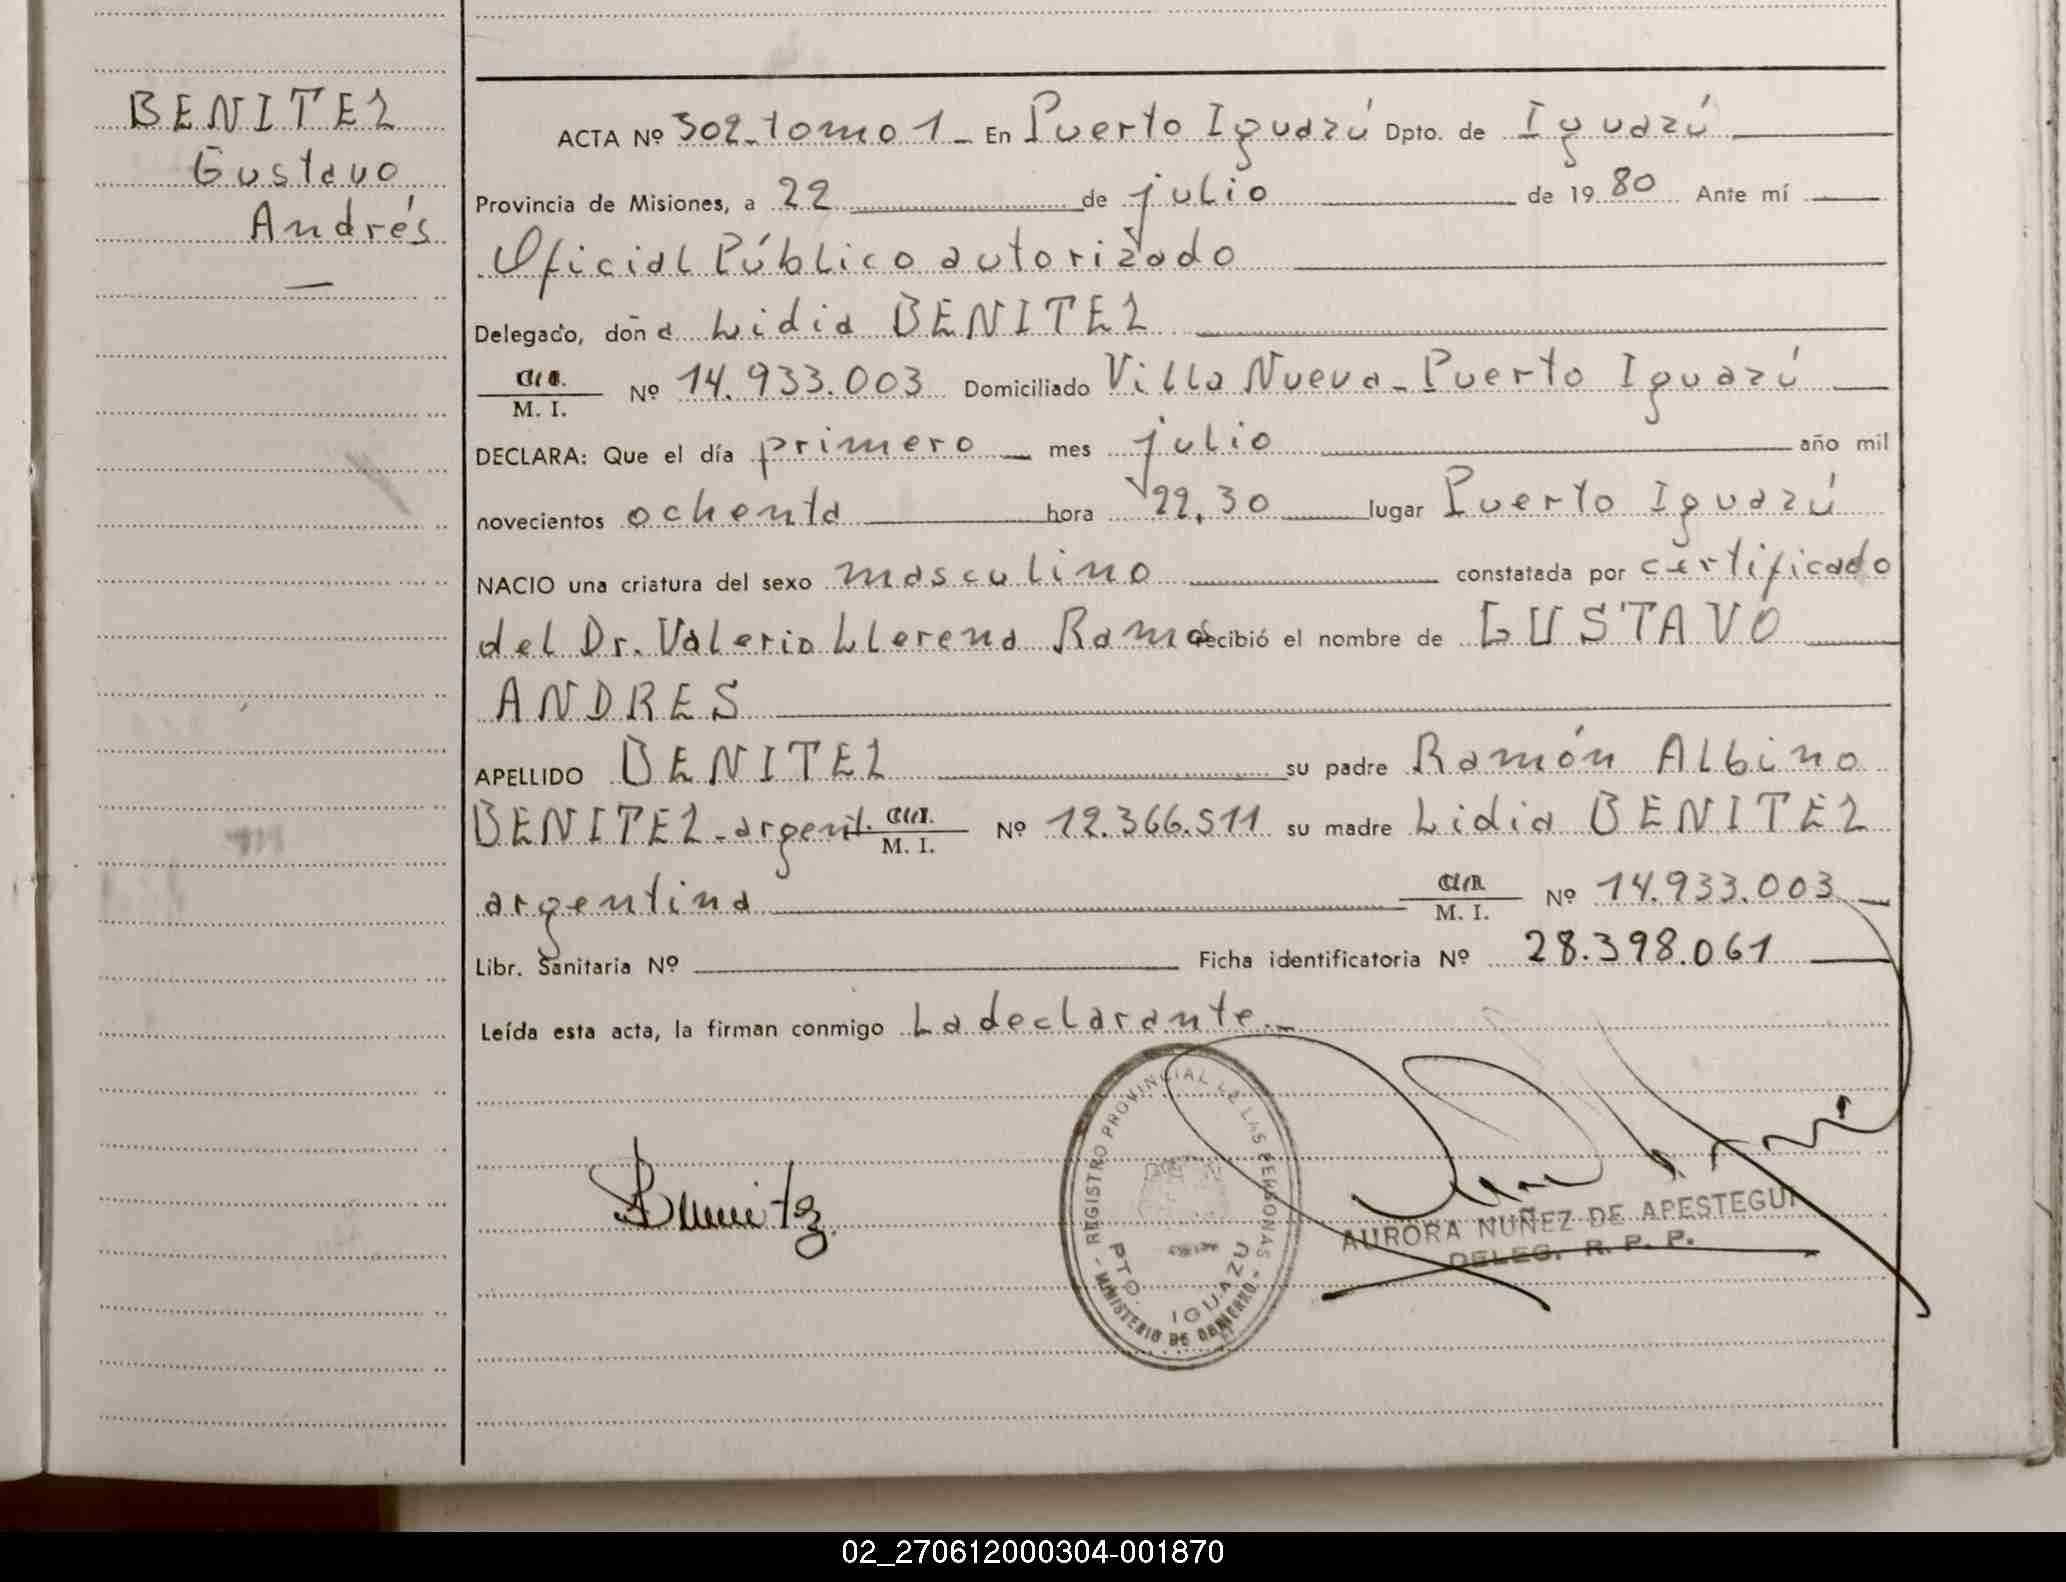 BENITEZ
Gustavo
Andrés
—
ACTA Nº 302_tomo 1_ En Puerto Iguazú Dpto. de Iguazú
Provincia de Misiones, a 22 de julio de 19 80 Ante mí
Oficial Público autorizado
Delegado, doñ a Lidia BENITEZ
M. I. Nº 14.933.003 Domiciliado Villa Nueva_Puerto Iguazú
DECLARA: Que el día primero mes julio año mil
novecientos ochenta hora 22,30 lugar Puerto Iguazú
NACIO una criatura del sexo masculino constatada por certificado
del Dr. Valerio Llerena Ramos recibió el nombre de GUSTAVO
ANDRES
APELLIDO BENITEZ su padre Ramón Albino
BENITEZ_argent. M. I. Nº 12.366.511 su madre Lidia BENITEZ
argentina M. I. Nº 14.933.003
Libr. Sanitaria Nº Ficha identificatoria Nº 28.398.061
Leída esta acta, la firman conmigo La declarante._
Benitez
- REGISTRO PROVINCIAL DE LAS PERSONAS -
PTO. IGUAZU
MINISTERIO DE GOBIERNO
AURORA NUÑEZ DE APESTEGUI
DELEG. R. P. P.
02_270612000304-001870